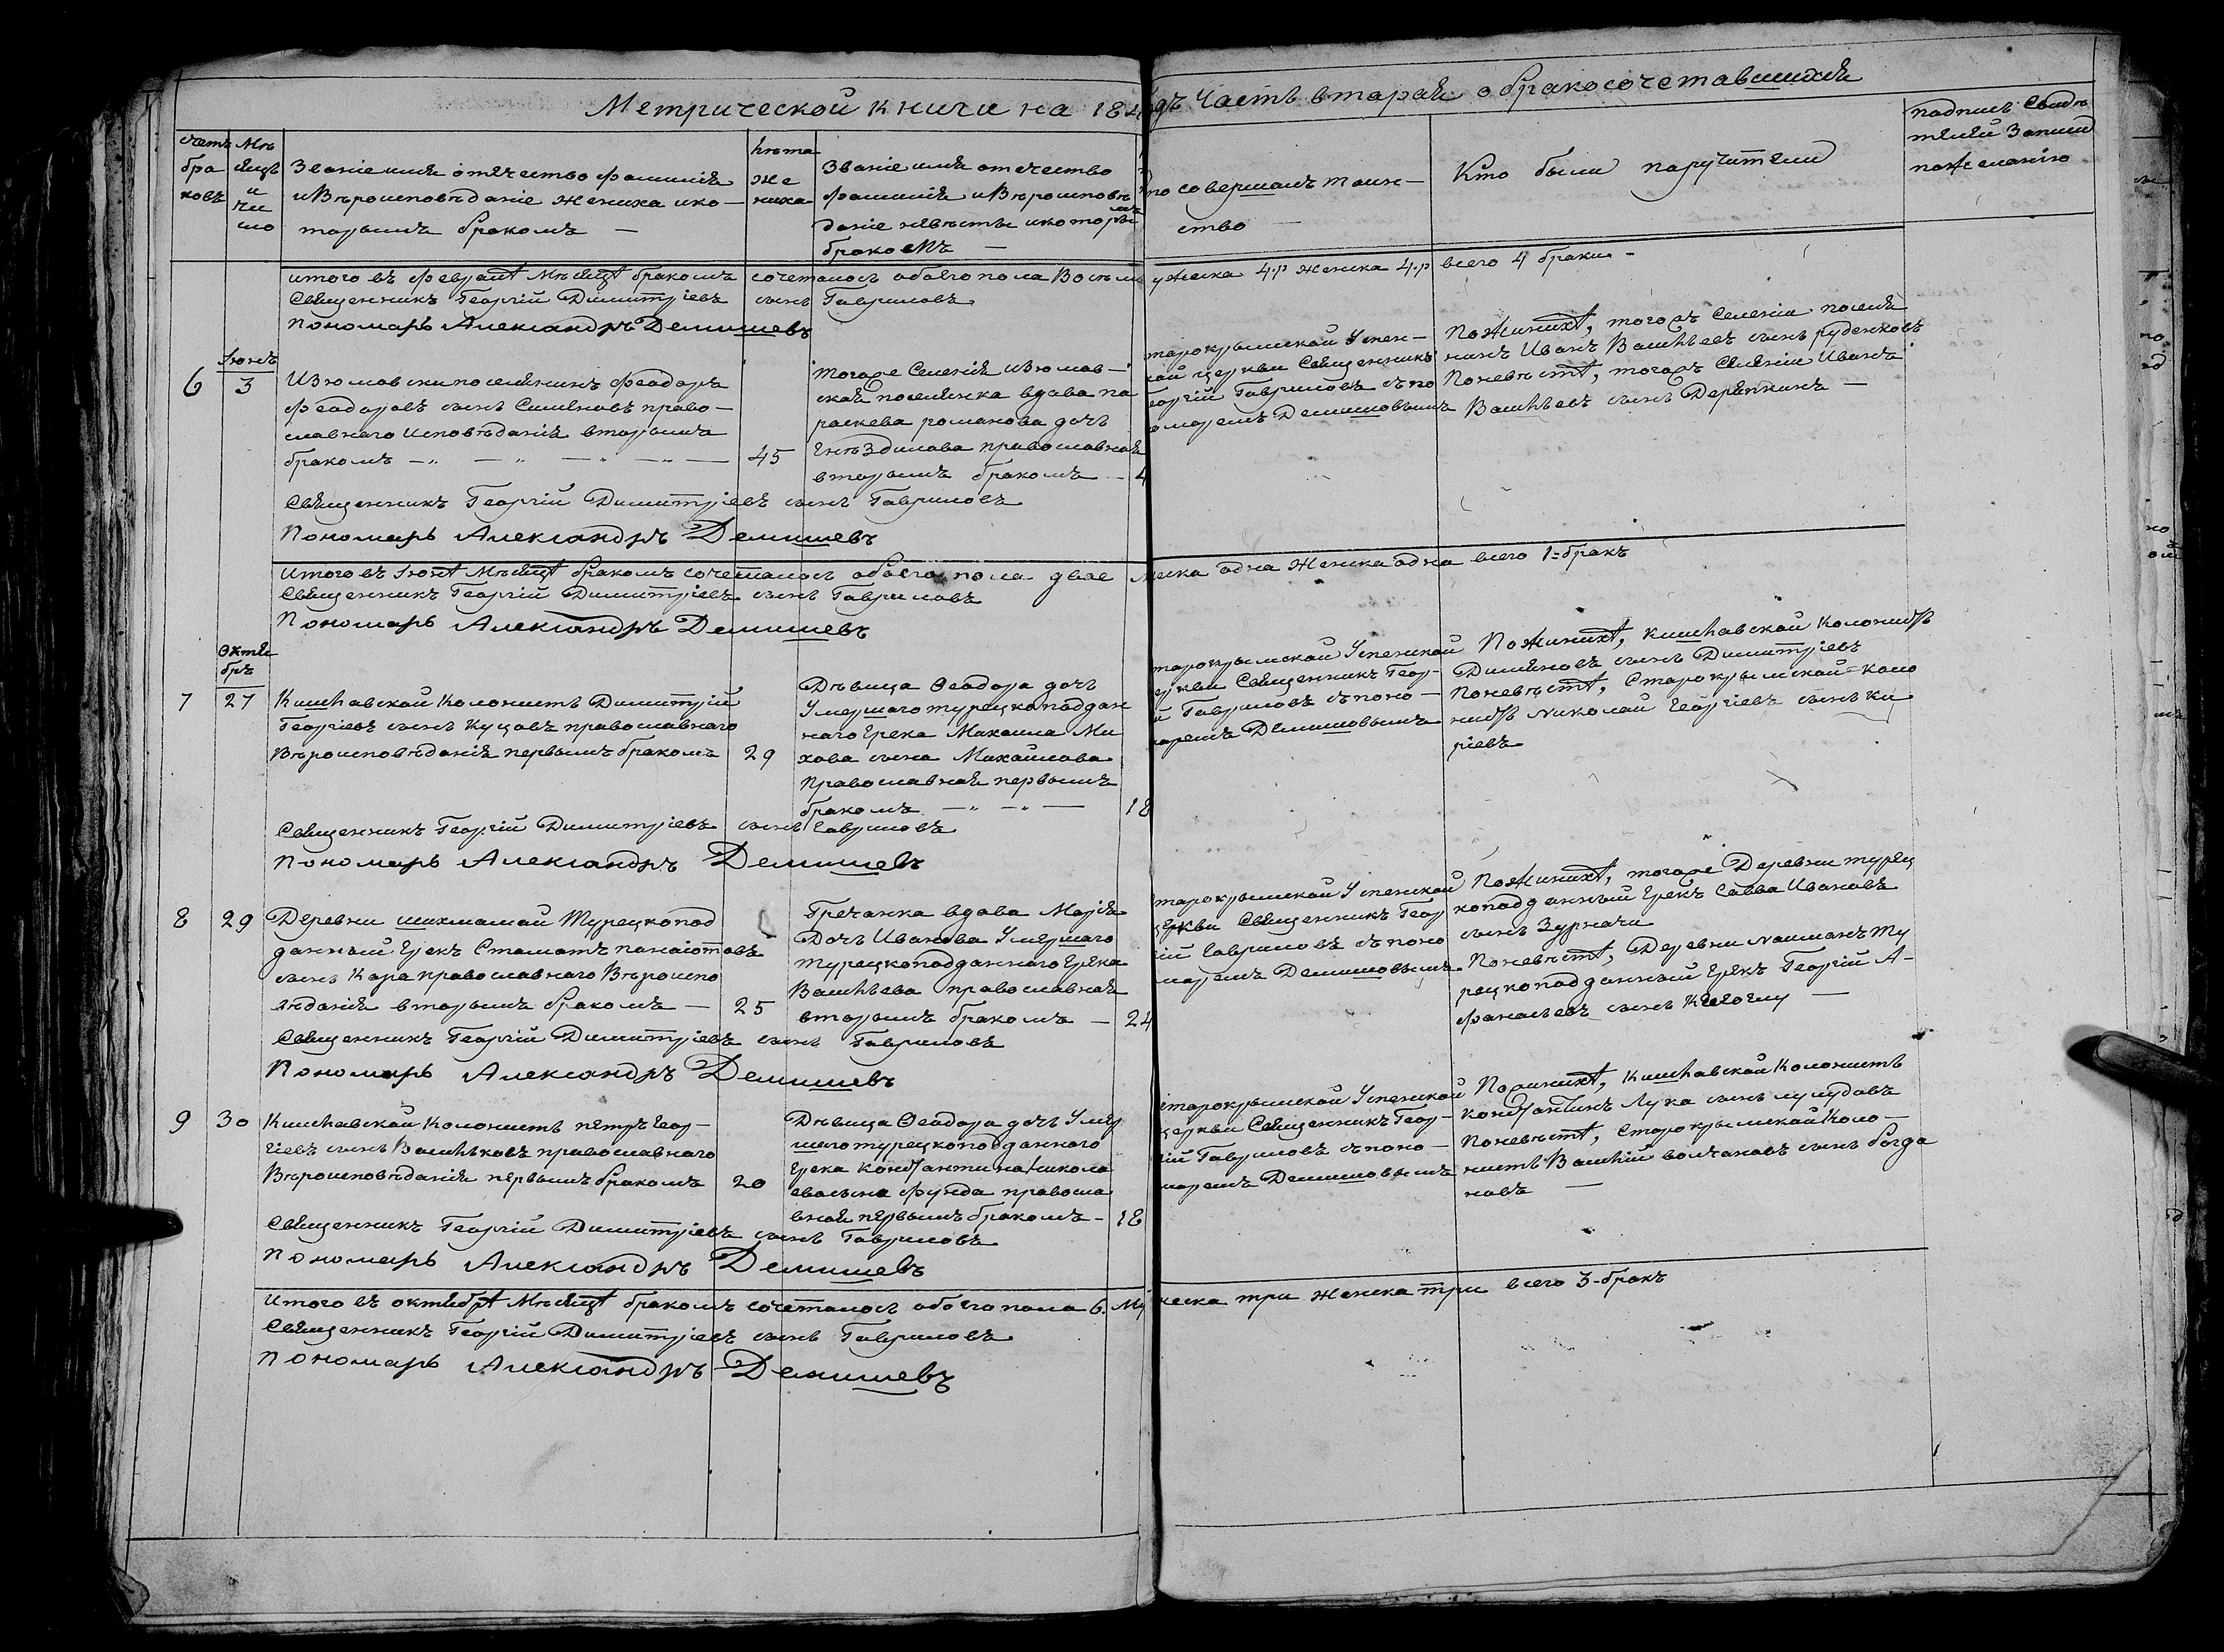 Метрической книги на 184
дъ Часть вторая о бракосочетавшихся
счетъ
бра
ковъ
Мѣ
сяцъ
и
чи
сло
Званіе имя отечество фамилія
и Вѣроисповѣданіе жениха и ко-
торымъ бракомъ —
Лѣта
же
ниха
Званіе имя отечество
фамилія и Вѣроисповѣ
даніе невѣсты и которы
мъ
бракомъ —
то совершалъ таин-
ство —
Кто были паручители
подпись Свидѣ
телей Записи
по желанію
итого въ февралѣ Мѣсяцѣ бракомъ сочеталось обоего пола Восемь ужеска 4.р женска 4.р всего 4 брака -
Священникъ Георгій Димитріевъ сынъ Гавриловъ
Пономарь Александръ Демишевъ
Іюнь
6
3
Изюмовски поселянинъ феадаръ
феадаровъ сынъ Симяновъ право-
славнаго Исповѣданія вторымъ
бракомъ
45
тогоже Селенія изюмов-
ская поселянка вдова па
раскева романова дочь
Гнѣздилова православная
вторымъ бракомъ — 4
тарокрымской Успен-
кой церкви Священникъ
еоргій Гавриловъ съ по
омаремъ Демишовымъ
По Женихѣ, тогожъ Селенія поселя
нинъ Иванъ Васильевъ сынъ руденковъ
По невѣстѣ, тогожъ Селенія Иванъ
Васильевъ сынъ Дерепкинъ —
Священникъ Георгій Димитріевъ сынъ Гавриловъ
Пономарь Александръ Демишевъ
Итого въ Іюнѣ Мѣсяцѣ бракомъ сочеталось обоего пола двое Мжеска одна Женска одна всего 1= бракъ
Священникъ Георгій Димитріевъ сынъ Гавриловъ
Пономарь Александръ Демишевъ
Октя
брь
7
27
Кишлавской Колонистъ Димитрій
Георгіевъ сынъ Куцовъ православнаго
Вѣроисповѣданія первымъ бракомъ
29
Дѣвица Ѳеадора дочь
Умершаго турецкоподдан
наго Грека Михаила Ми
хова сына Михайлова
Православная первымъ
бракомъ
18
тарокрымской Успенской
еркви Священникъ Геор-
й Гавриловъ съ поно-
аремъ Демишовымъ
По Женихѣ, Кишлавской Колонистъ
Димяновъ сынъ Димитріевъ
По невѣстѣ, Старокрымской Коло
нистъ Николай Георгіевъ сынъ Ки
ріевъ
Священникъ Георгій Димитріевъ сынъ Гавриловъ
Пономарь Александръ Демишевъ
8
29
Деревни шихмамай Турецкопод
данный Грекъ Стаматъ панаіотовъ
сынъ Кара православнаго Вѣроиспо
вѣданія вторымъ бракомъ —
25
Гречанка вдова Марія
Дочь Иванова Умершаго
турецкоподданнаго Грека
Васильева православная
вторымъ бракомъ —
24
тарокрымской Успенской
церкви Священникъ Геор
гій Гавриловъ съ поно
маремъ Демишовымъ
По Женихѣ, тогоже Деревни турец
коподданный Грекъ Савва Ивановъ
сынъ Зурначи
По невѣстѣ, Деревни Найманъ Ту
рецкоподданный Грекъ Георгій А-
фанасьевъ сынъ
Священникъ Георгій Димитріевъ сынъ Гавриловъ
Пономарь Александръ Демишевъ
9
30
Кишлавской Колонистъ Петръ Геор-
гіевъ сынъ Васильковъ православнаго
Вѣроисповѣданія первымъ бракомъ
20
Дѣвица Ѳеадора дочь Умер
шаго турецкоподданнаго
Грека Константина Никола
ева сына Фунда правосла
вная первымъ бракомъ —
18
старокрымской Успенской
церкви Священникъ Геор-
гій Гавриловъ съ поно-
маремъ Демишовымъ
По женихѣ, Кишлавской Колонистъ
Константинъ Лука сынъ
По невѣстѣ, Старокрымской Коло-
нистъ Василій волчановъ сынъ богда
новъ —
Священникъ Георгій Димитріевъ сынъ Гавриловъ
Пономарь Александръ Демишевъ
Итого въ октябрѣ Мѣсяцѣ бракомъ сочеталось обоего пола 6. Му жеска три женска три всего 3-бракъ
Священникъ Георгій Димитріевъ сынъ Гавриловъ
Пономарь Александръ Демишевъ